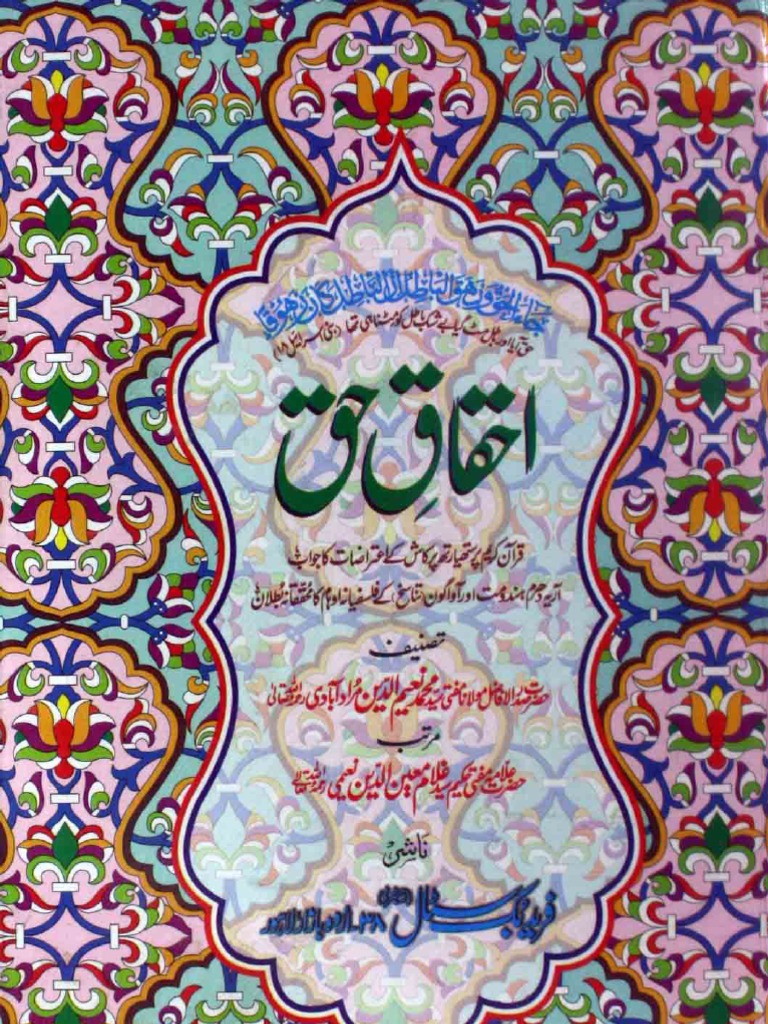 جاء الحق وزهق الباطل ان الباطل كان زهوقا
حق آیا اور باطل مٹ گیا بے شک باطل کو مٹنا ہی تھا (بنی اسرائیل ۸۱)
احقاقِ حق
قرآن کریم پر ستھیارتھ پرکاش کے اعتراضات کا جواب
آریہ دھرم ہندومت اور آواگون تناسخ کے فلسفیانہ اوہام کا محققانہ بُطلان
تصنیف
حضرت صدر الافاضل مولانا مفتی سید محمد نعیم الدین مُراد آبادی رحمۃ اللہ تعالیٰ
مرتب
حضرت علامہ مفتی حکیم سید غلام معین الدین نعیمی رحمۃ اللہ علیہ
ناشر
فرید بک سٹال
۳۸۔اردو بازار لاہور